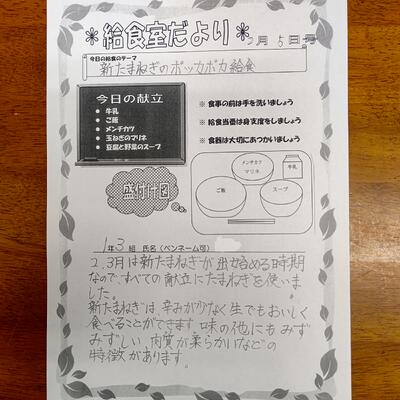 ＊給食室だより＊
3月5日号
今日の給食のテーマ
新たまねぎのポッカポカ給食
今日の献立
● 牛乳
● ご飯
● メンチカツ
● 玉ねぎのマリネ
● 豆腐と野菜のスープ
※ 食事の前は手を洗いましょう
※ 給食当番は身支度をしましょう
※ 食器は大切にあつかいましょう
盛付け図
メンチカツ
マリネ
牛乳
ご飯
スープ
1年3組 氏名（ペンネーム可）
2、3月は新たまねぎが出始める時期
なので、すべての献立にたまねぎを使いま
した。
新たまねぎは、辛みが少なく生でもおいしく
食べることができます。味の他にもみず
みずしい、肉質が柔らかいなどの
特徴があります。